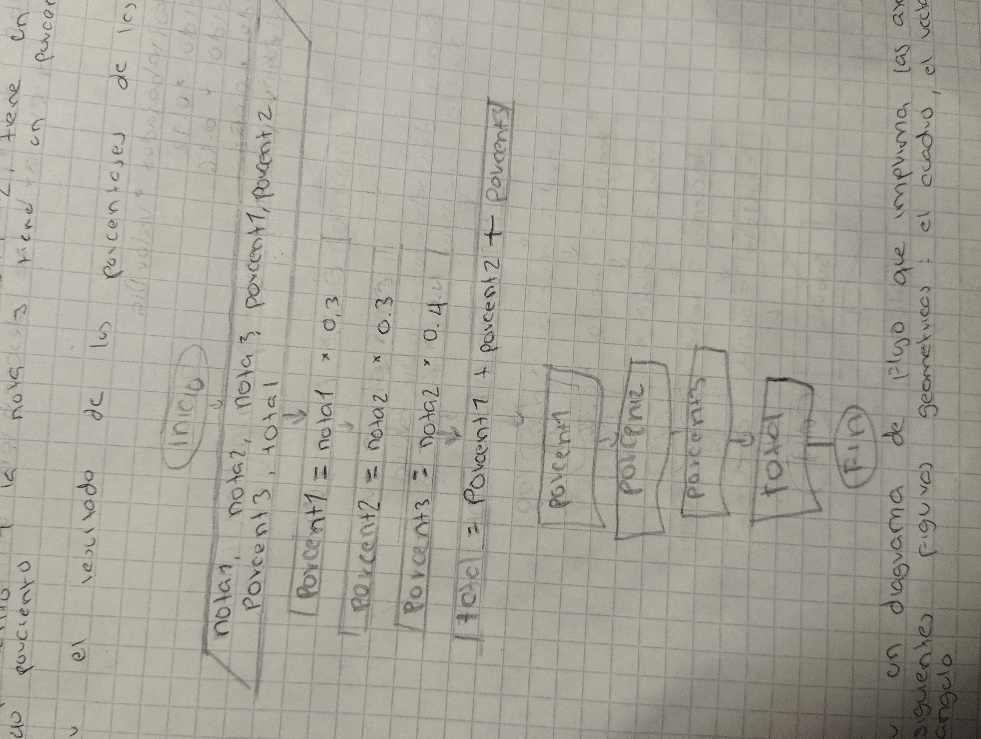 2, tiene
porciento y la nota 3 tiene un
el resultado de los porcentajes de los
Inicio
nota1, nota2, nota3, porcent1, porcent2,
porcent3, total
Porcent1 = nota1 * 0.3
Porcent2 = nota2 * 0.3
Porcent3 = nota2 * 0.4
total = Porcent1 + porcent2 + porcent3
porcent1
porcent2
porcent3
total
Fin
un diagrama de flujo que imprima las
siguentes figuras geometricas: el cuadro, el
angulo